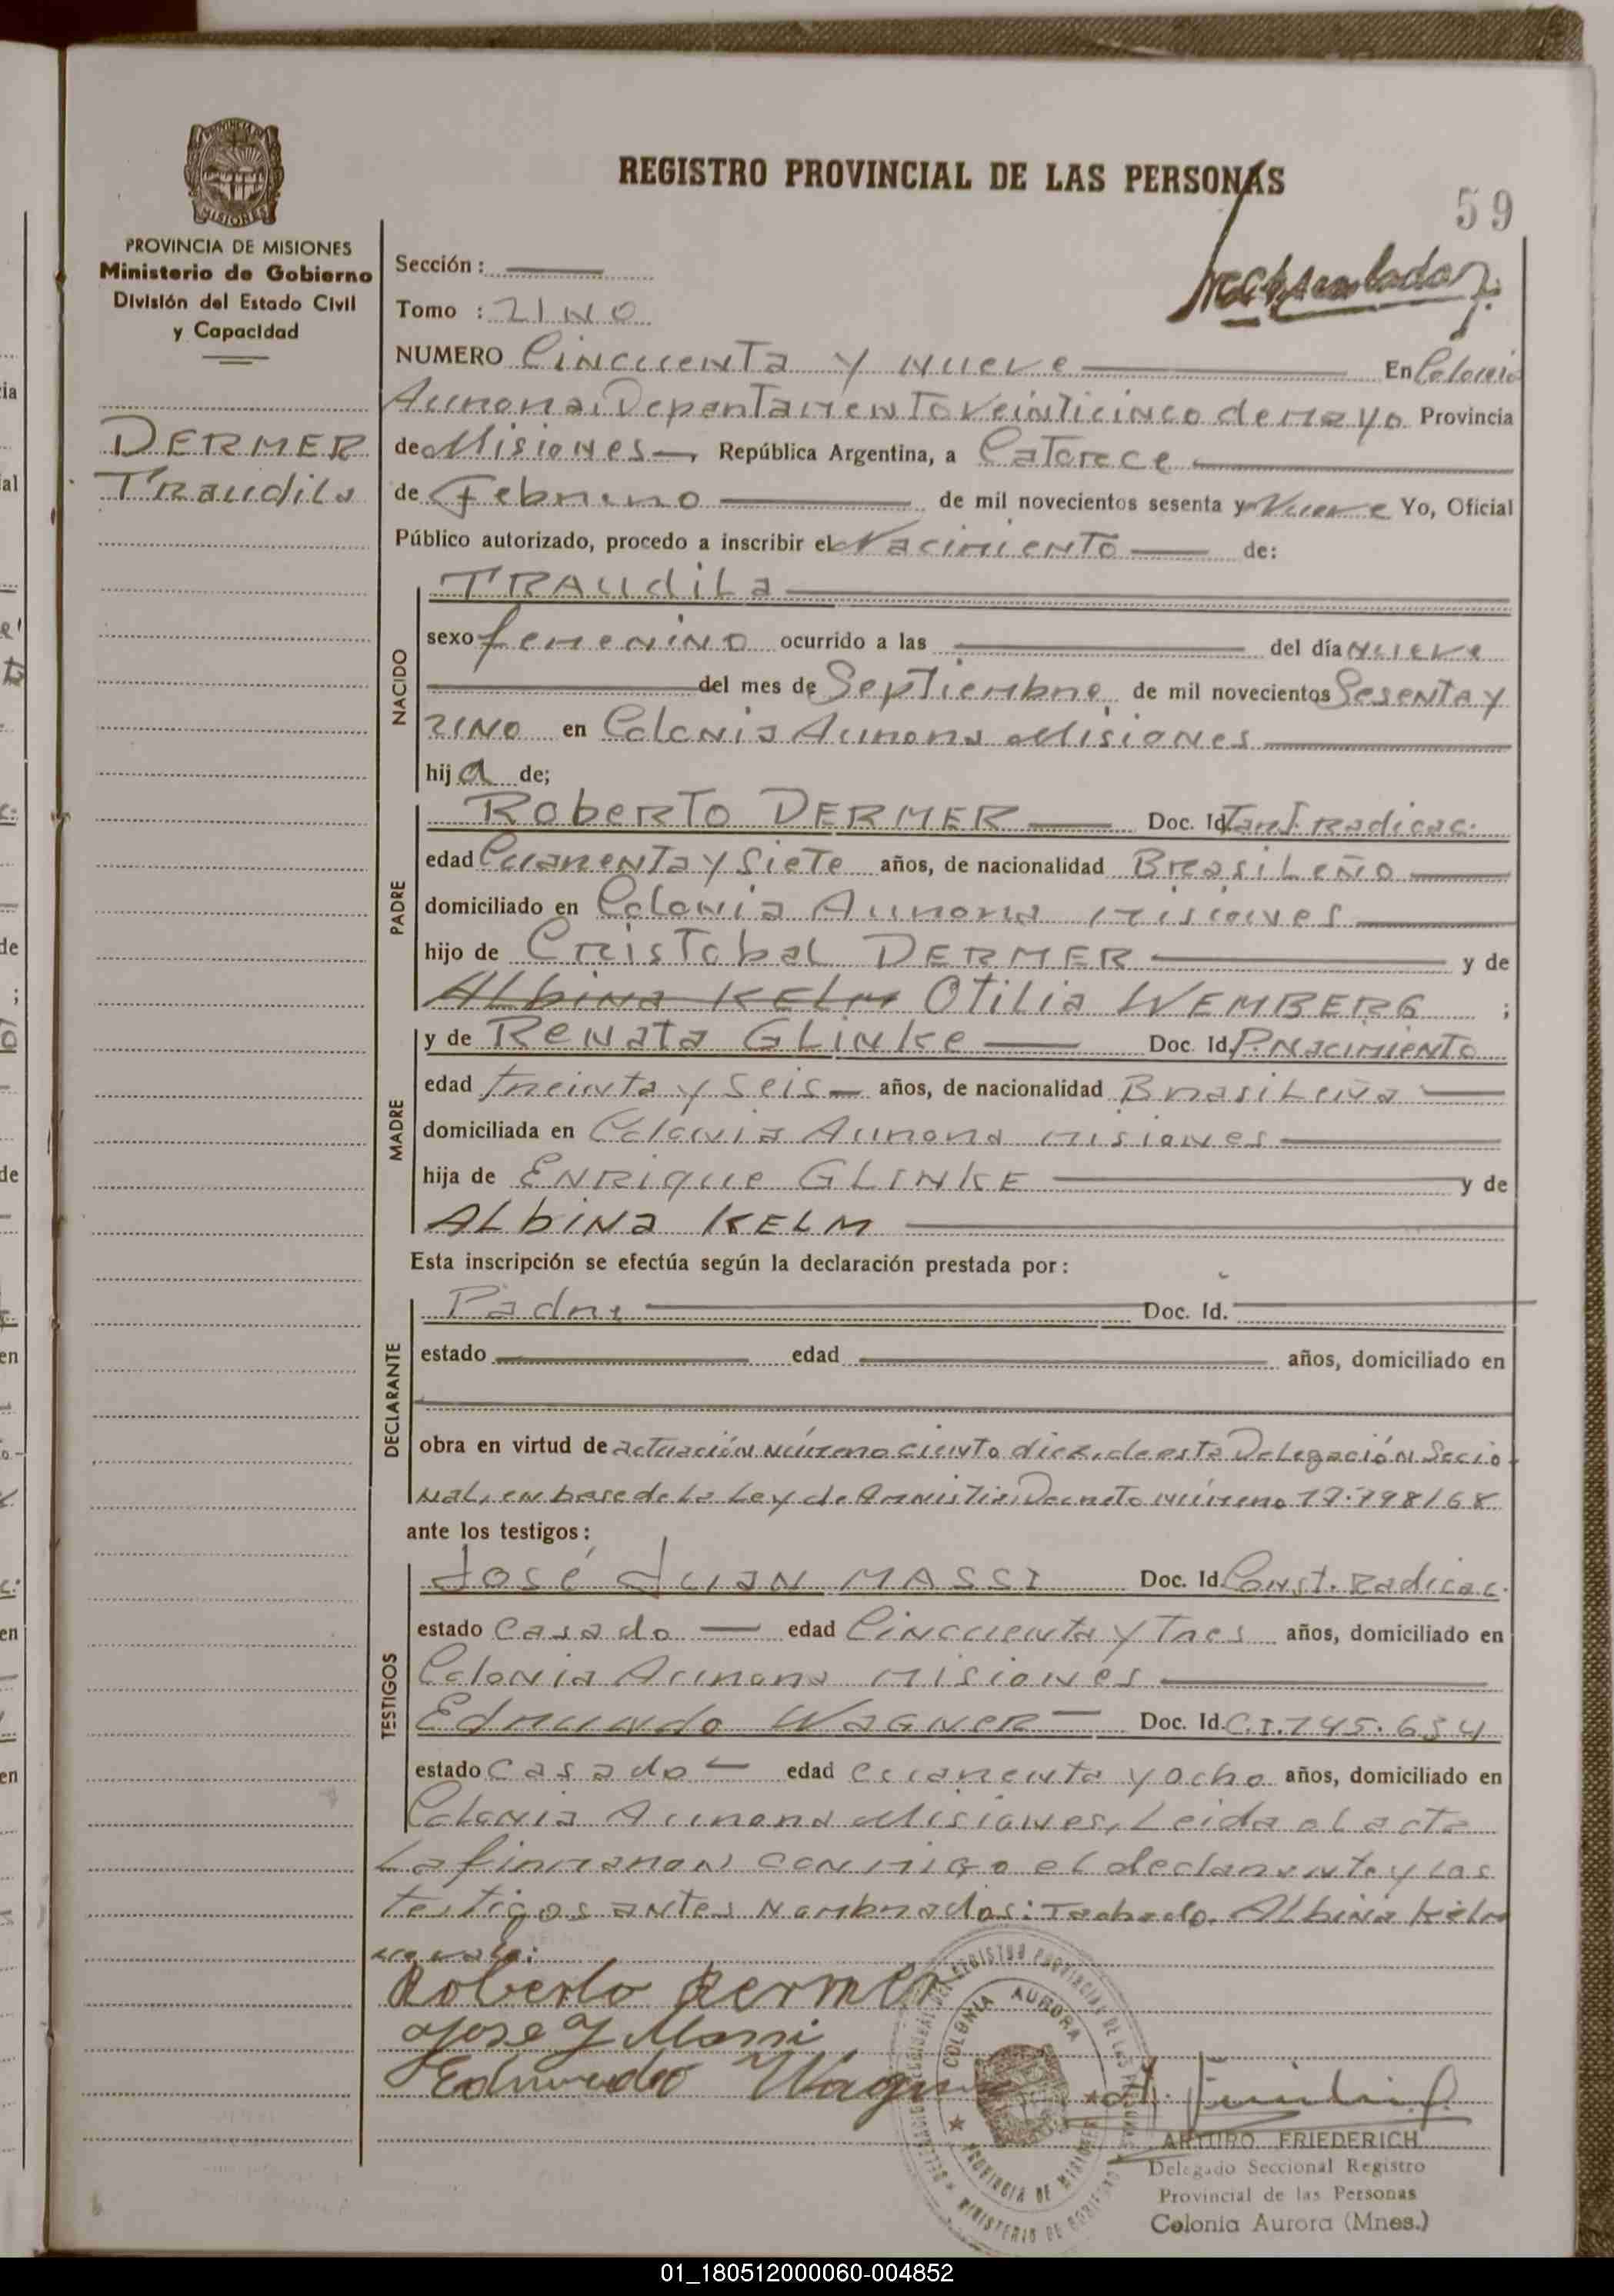 REGISTRO PROVINCIAL DE LAS PERSONAS
59
MISIONES
PROVINCIA DE MISIONES
Ministerio de Gobierno
División del Estado Civil
y Capacidad
DERMER
Traudila
Sección :
Tomo : UNO
NUMERO Cincuenta y nueve En Colonia
Aurora, Departamento Veinticinco de mayo Provincia
de Misiones República Argentina, a Catorce
de Febrero de mil novecientos sesenta y Nueve Yo, Oficial
Público autorizado, procedo a inscribir el Nacimiento de:
NACIDO
TRAUdiLa
sexo femenino ocurrido a las del día nueve
del mes de Septiembre de mil novecientos Sesenta y
UNO en Colonia Aurora Misiones
hija de;
PADRE
Roberto DERMER Doc. Id Tant. Radicac.
edad Cuarenta y Siete años, de nacionalidad Brasileño
domiciliado en Colonia Aurora Misiones
hijo de Cristobal DERMER y de
Albina KELM Otilia WEMBERG ;
MADRE
y de Renata GLINKe Doc. Id. P. Nacimiento
edad treinta y seis años, de nacionalidad Brasileña
domiciliada en Colonia Aurora Misiones
hija de ENRique GLINKE y de
ALbiNa KELM
Esta inscripción se efectúa según la declaración prestada por :
DECLARANTE
Padre Doc. Id.
estado edad años, domiciliado en
obra en virtud de actuación número ciento diez, de esta Delegación Seccio
nal, en base de la Ley de Amnistia, Decreto número 17.798/68
ante los testigos :
TESTIGOS
José Juan MASSI Doc. Id. Const. Radicac.
estado Casado edad Cincuenta y Tres años, domiciliado en
Colonia Aurora Misiones
Edmundo WAGNER Doc. Id. C.I. 145.634
estado Casado edad cuarenta y ocho años, domiciliado en
Colonia Aurora Misiones, Leida el acta
La firmaron conmigo el declarante y Los
testigos antes nombrados: Tachado. Albina Kelm
no vale:
Roberto Dermer
Jose J Massi
Edmundo Wagner
COLONIA AURORA
PROVINCIA DE MISIONES
ARTURO FRIEDERICH
Delegado Seccional Registro
Provincial de las Personas
Colonia Aurora (Mnes.)
01_180512000060-004852